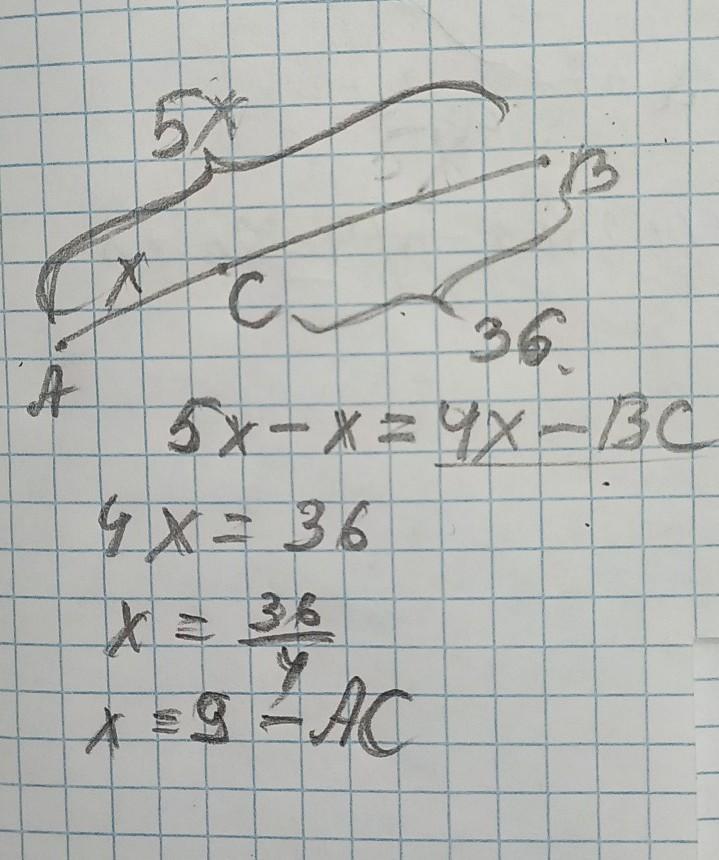 5x
B
x
C
36.
A
5x - x = 4x - BC
4x = 36
x = 36/4
x = 9 - AC